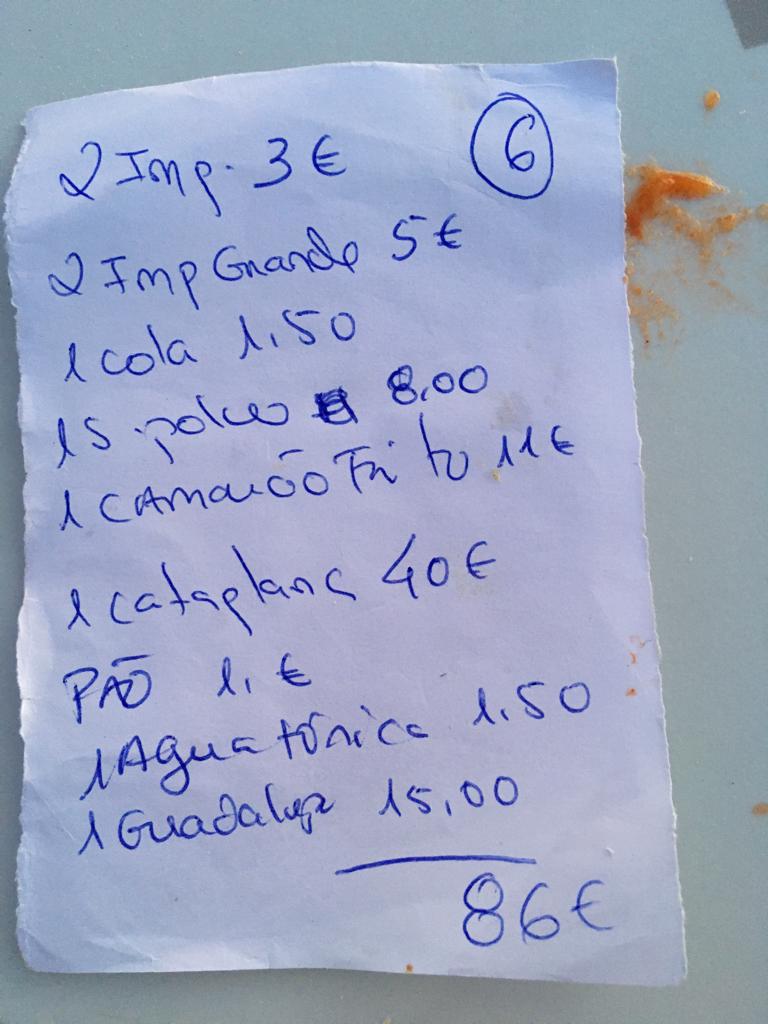 2 Imp. 3 €
6
2 Imp Grande 5 €
1 cola 1.50
1 S. polvo 8.00
1 CAmarão Frito 11 €
1 cataplana 40 €
PÃO 1. €
1 Agua tónica 1.50
1 Guadalupe 15,00
86 €